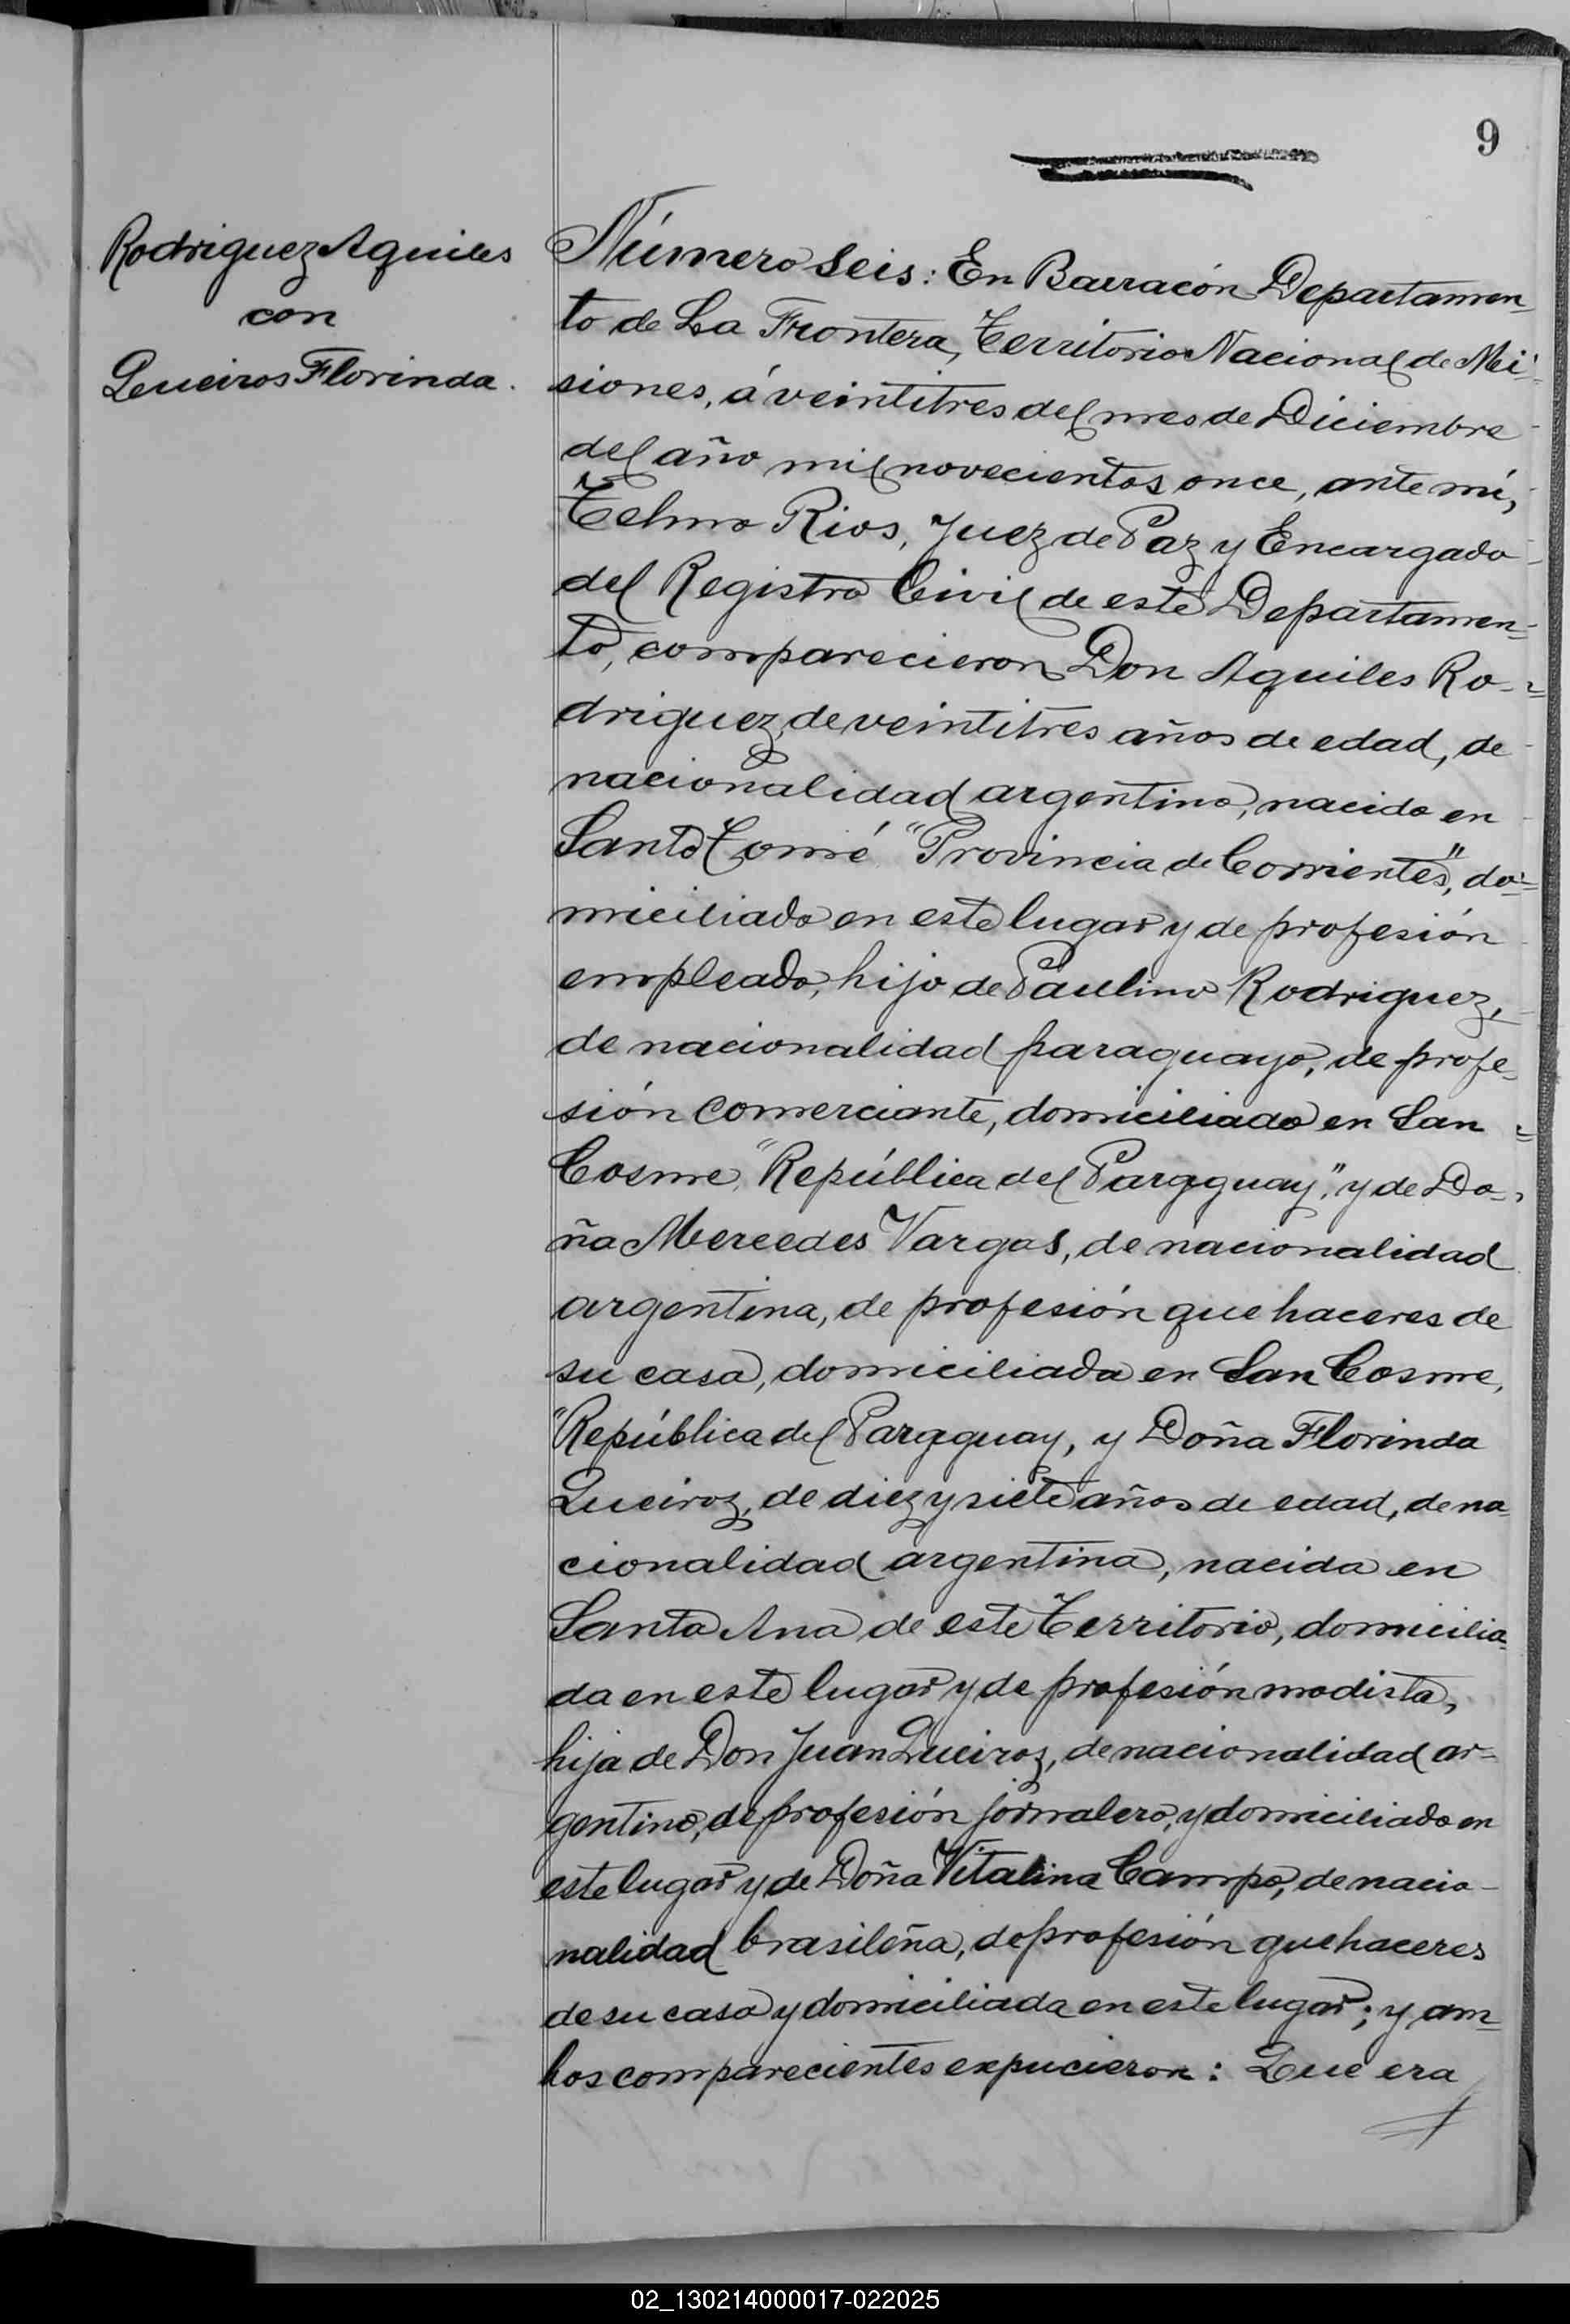 9
Rodriguez Aquiles
con
Queiros Florinda.
Número Seis: En Barracón Departamen
to de La Frontera, Territorio Nacional de Mi-
siones, á veintitres del mes de Diciembre
del año mil novecientos once, ante mí,
Telmo Rios, Juez de Paz y Encargado
del Registro Civil de este Departamen-
to, comparecieron Don Aquiles Ro-
driguez, de veintitres años de edad, de
nacionalidad argentino, nacido en
Santo Tomé "Provincia de Corrientes", do-
miciliado en este lugar y de profesión
empleado, hijo de Paulino Rodriguez,
de nacionalidad paraguayo, de profe-
sión comerciante, domiciliado en San
Cosme, "República del Paraguay," y de Do-
ña Mercedes Vargas, de nacionalidad
argentina, de profesión que haceres de
su casa, domiciliada en San Cosme,
"República del Paraguay, y Doña Florinda
Queiroz, de diez y siete años de edad, de na
cionalidad argentina, nacida en
Santa Ana de este Territorio, domicilia
da en este lugar y de profesión modista,
hija de Don Juan Queiroz, de nacionalidad ar-
gentino, de profesión jornalero, y domiciliado en
este lugar y de Doña Vitalina Campo, de nacio-
nalidad brasileña, de profesión que haceres
de su casa y domiciliada en este lugar; y am-
bos comparecientes expucieron: Que era
02_130214000017-022025